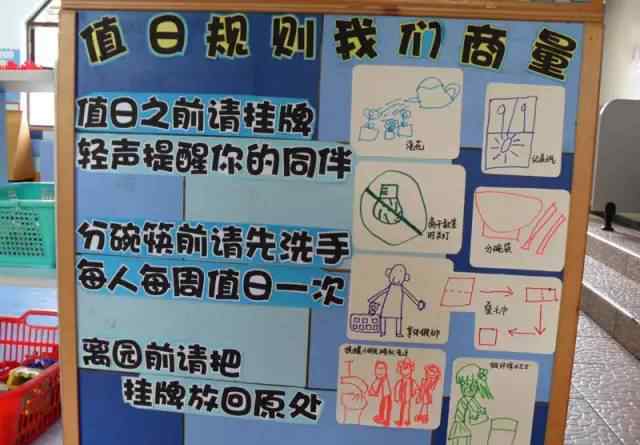 值日规则我们商量
值日之前请挂牌
轻声提醒你的同伴
分碗筷前请先洗手
每人每周值日一次
离园前请把
挂牌放回原处
浇花
分碗筷
叠毛巾